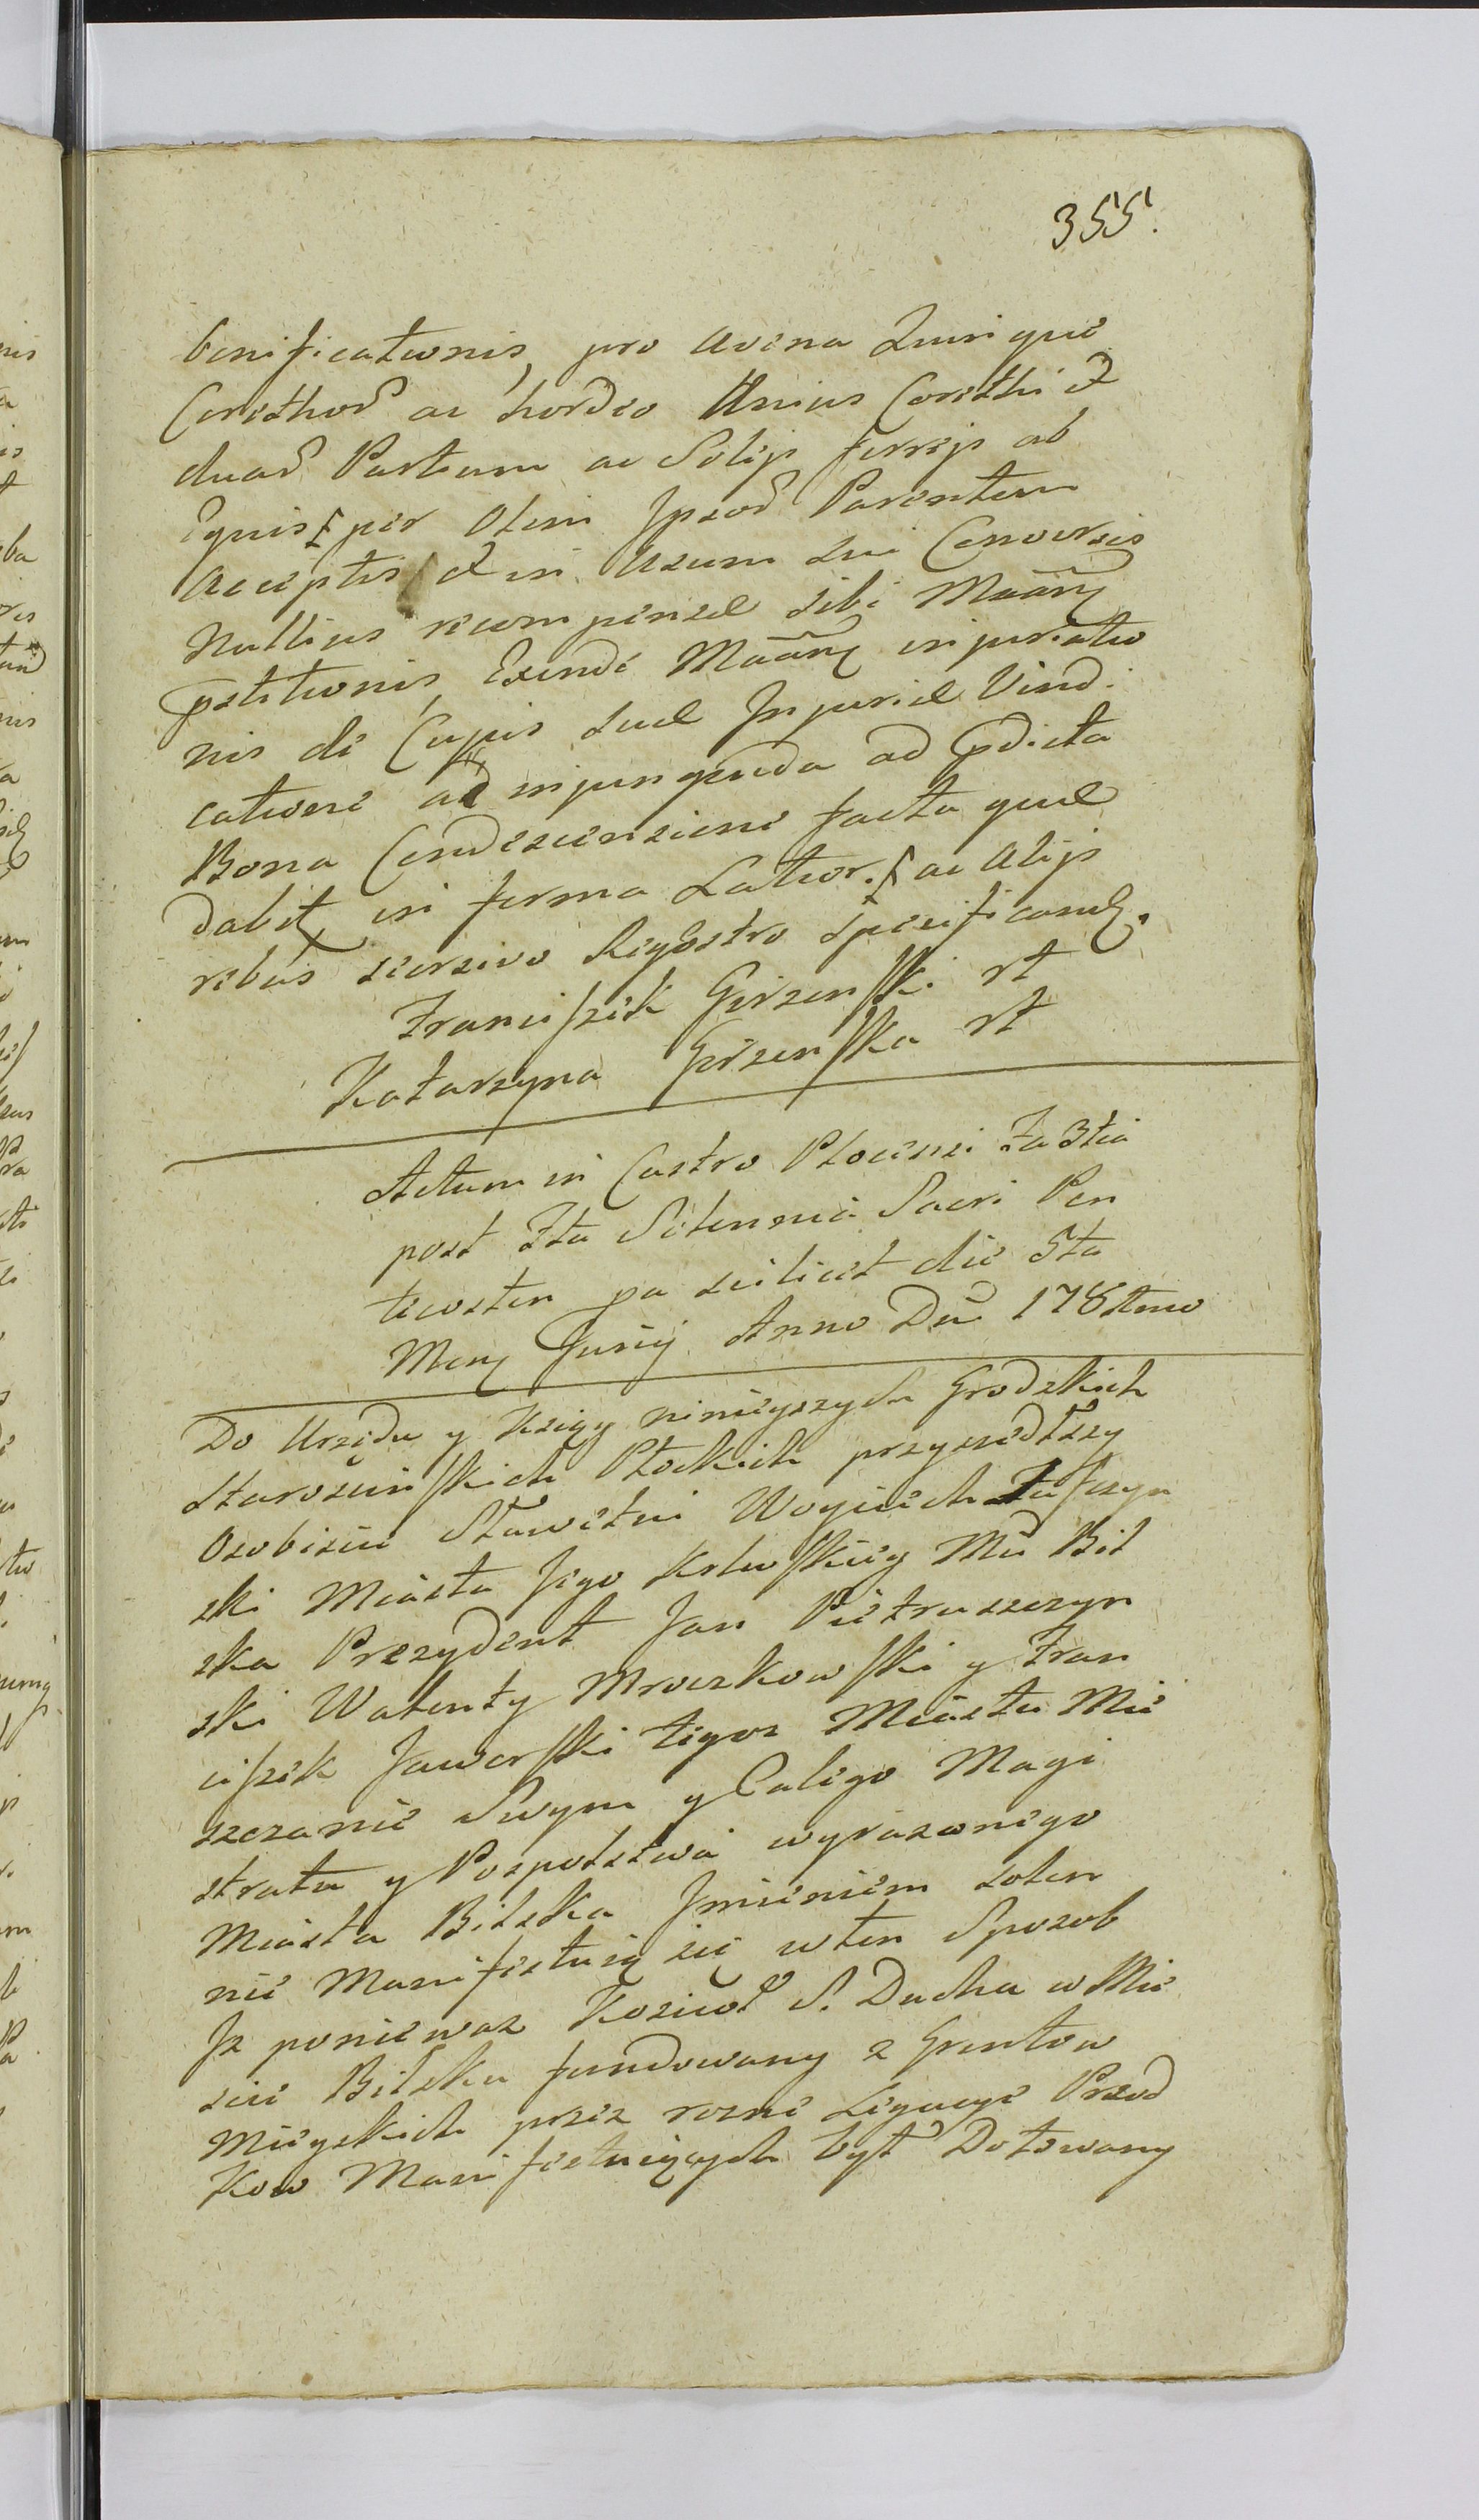 355.
benificationis, pro avena Quinque
Corethor̃ ac hordeo Unius Corethi et
duar̃ Partium ac Solijs ferrejs ab
Equis per Olim Ipsor̃ Parentem
acceptis et in Usum sui Conversis
Nullius recompensae sibi Mããnɋ
pstitionis, Exinde Mããnɋ injuriatio
nis de Cujus suae Injuriae Vindi
catione ad injungenda ad pdicta
Bona Condescensione facta quae
dabit, in forma Latior. ac alijs
rebus seorsivo Regestro specificandɋ.
Franciszek Gorzenski rt
Katarzyna Gorzenska rt
Actum in Castro Plocensi Fa 3tia
post Fta Solennia Sacri Pen
tecosten pa scilicet die 5ta
Menɋ Junij Anno Dni 178
Do Urzędu y Xsiąg ninieyszych Grodzkich
Staroscinskich Płockich przyszedłszy
Osobiscie Sławetni Woyciech
ski Miasta Jego Krlewskiey Mci Bil
ska Prezydent Jan Pietruszczyn
ski Walenty Mroczkowski y Fran
ciszek Jaworski tegoz Miasta Mie
szczanie Swym y Całego Magi
stratu y Pospolstwa wyrazonego
Miasta Bilska Jmieniem solen
nie Manifestuią się w ten Sposob
Jz poniewaz Kosciół S. Ducha w Mie
scie Bilsku fundowany z Gruntow
Mieyskich przez rozne Legacye Przod
kow Manifestuiących był Dotowany